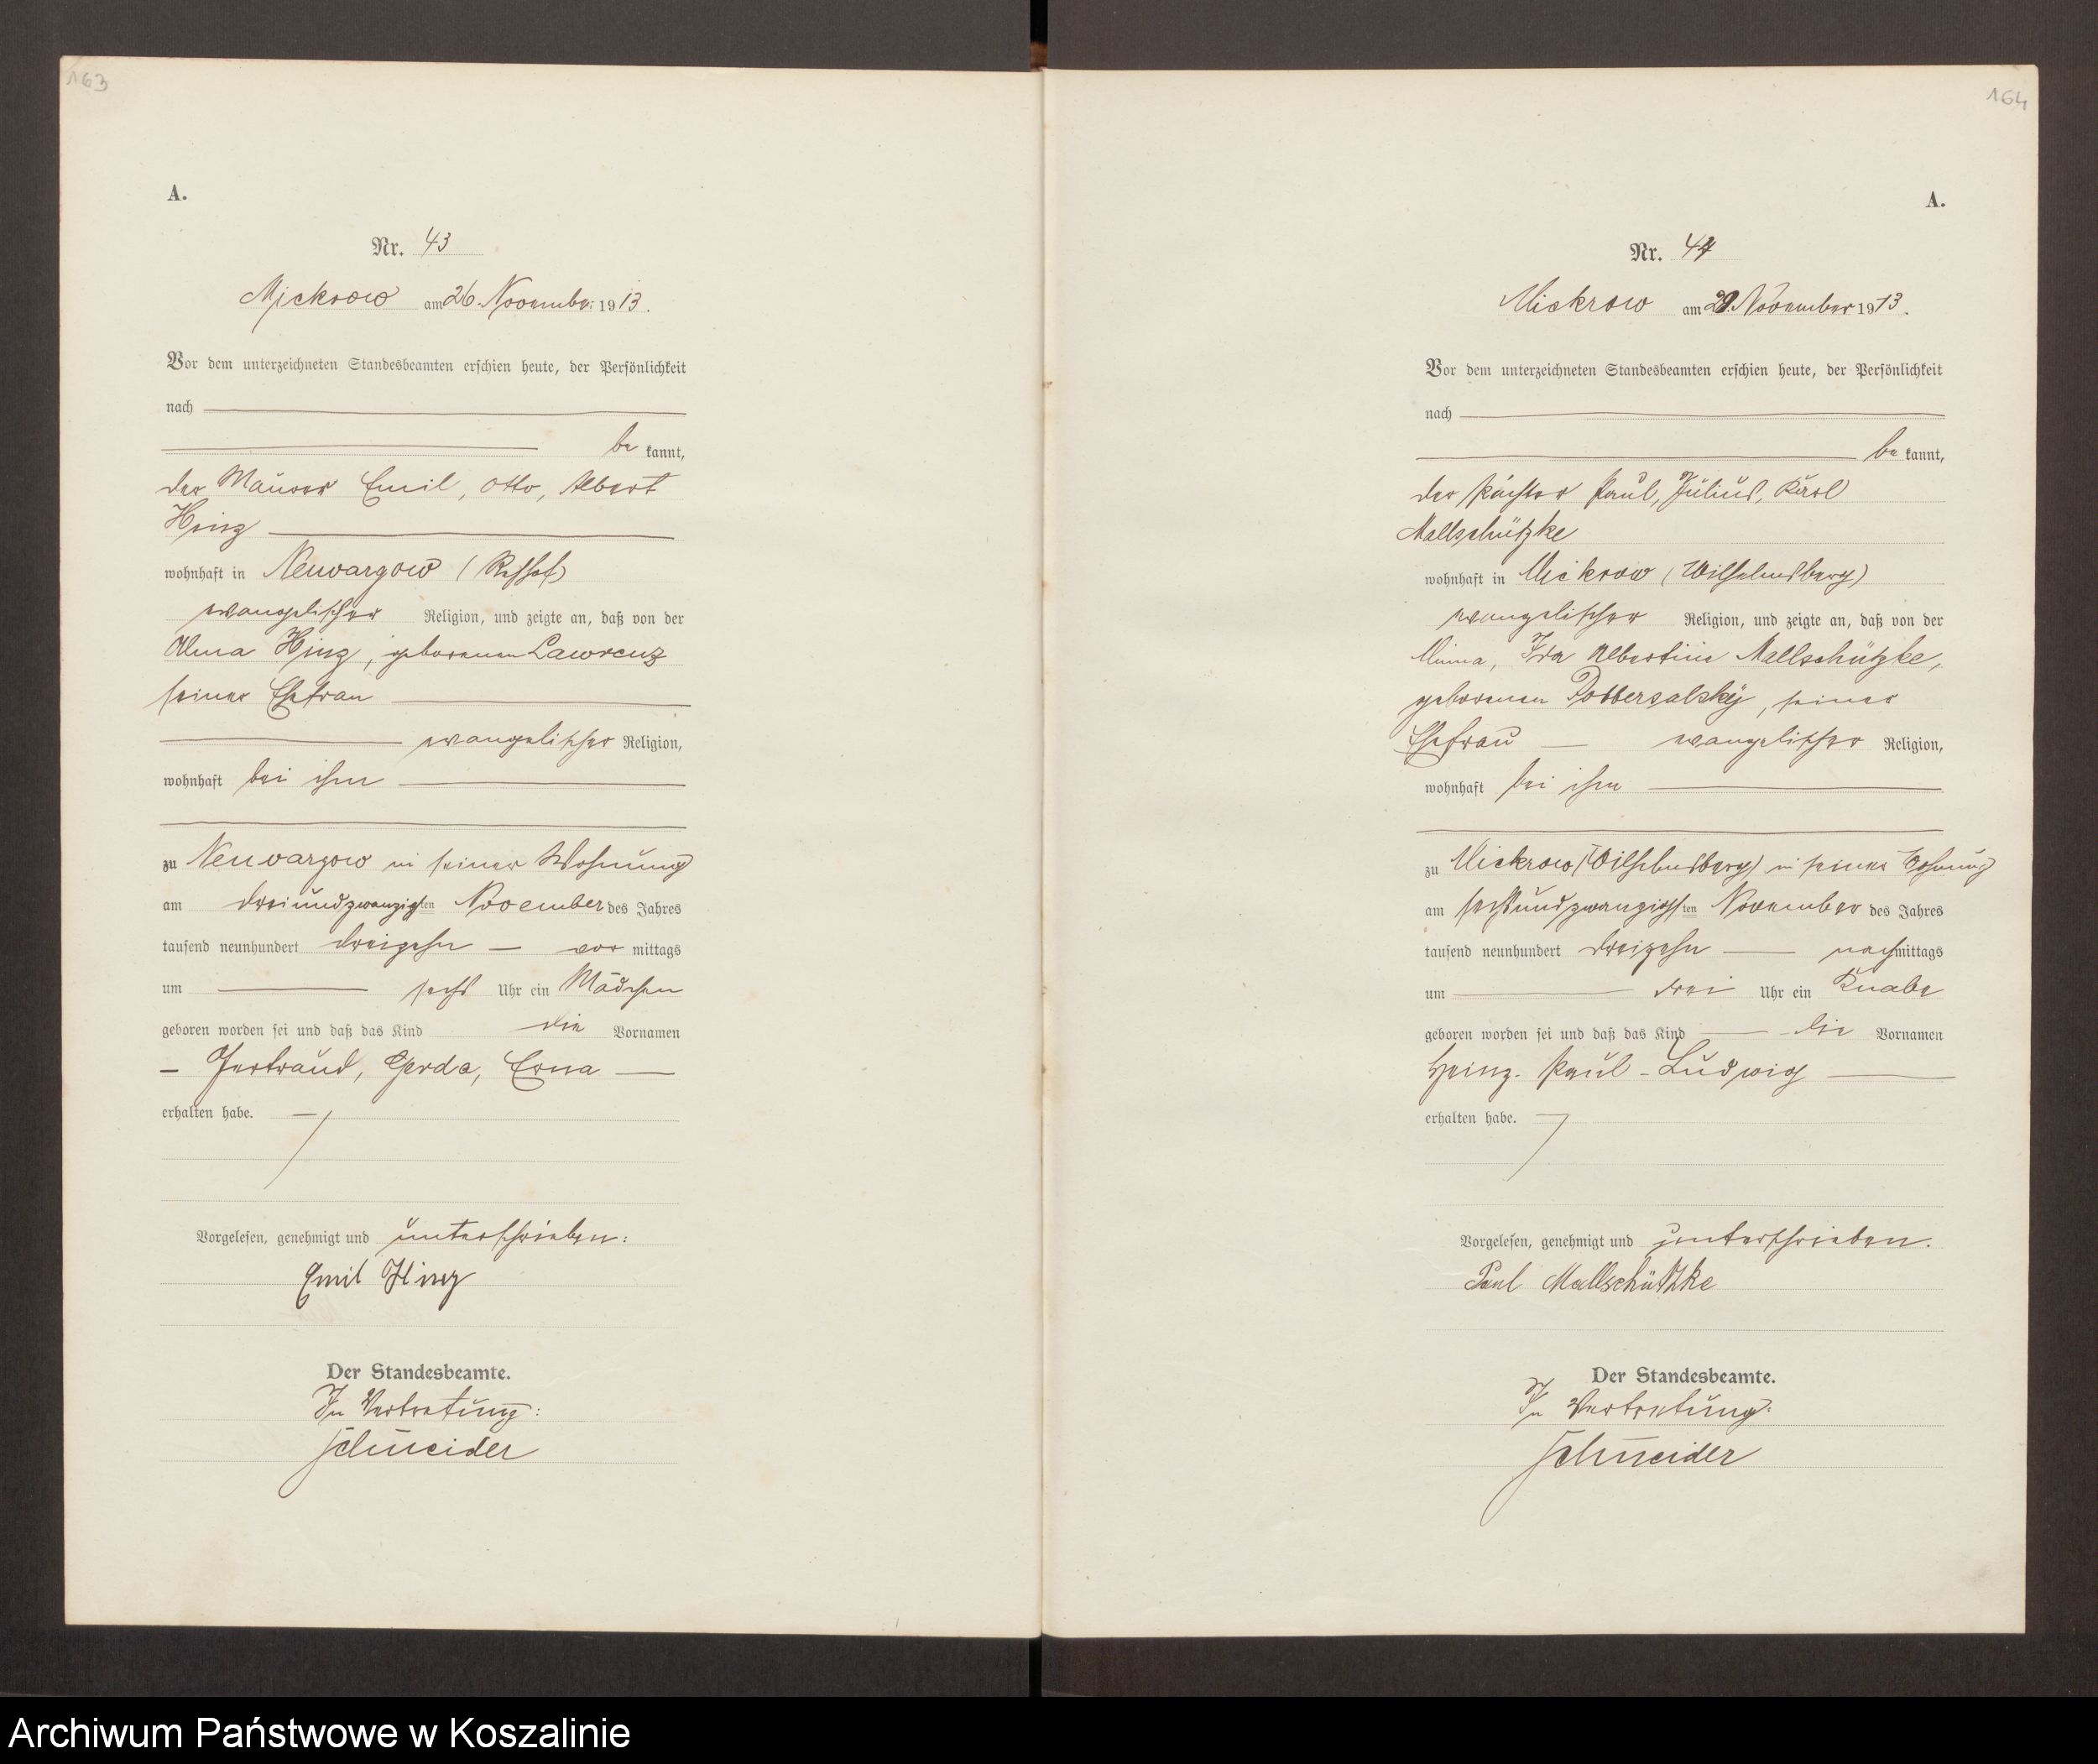 163
A.
Nr. 43
Mickrow am 26. November 1913.
Vor dem unterzeichneten Standesbeamten erschien heute, der Persönlichkeit
nach
be kannt,
der Maurer Emil, Otto, Albert
Hinz
wohnhaft in Neuvargow
evangelischer Religion, und zeigte an, daß von der
Alma Hinz, geborenen Lawrenz
seiner Ehefrau
evangelischer Religion,
wohnhaft bei ihm
zu Neuvargow in seiner Wohnung
am dreiundzwanzigsten November des Jahres
tausend neunhundert dreizehn vor mittags
um sechs Uhr ein Mädchen
geboren worden sei und daß das Kind die Vornamen
Gertraud, Gerda, Erna
erhalten habe.
Vorgelesen, genehmigt und unterschrieben:
Emil Hinz
Der Standesbeamte.
In Vertretung:
Schneider
164
A.
Nr. 44
Mickrow am November 1913.
Vor dem unterzeichneten Standesbeamten erschien heute, der Persönlichkeit
nach
be kannt,
der Pächter Paul, Julius, Karl
Mallschützke
wohnhaft in Mickrow (Wilhelmsberg)
evangelischer Religion, und zeigte an, daß von der
Minna, Ida Albertine Mallschützke,
geborenen seiner
Ehefrau evangelischer Religion,
wohnhaft bei ihm
zu Mickrow (Wilhelmsberg) in seiner Wohnung
am sechsundzwanzigsten November des Jahres
tausend neunhundert dreizehn nachmittags
um drei Uhr ein Knabe
geboren worden sei und daß das Kind die Vornamen
Heinz - Paul - Ludwig
erhalten habe.
Vorgelesen, genehmigt und unterschrieben.
Paul Mallschützke
Der Standesbeamte.
In Vertretung:
Schneider
Archiwum Państwowe w Koszalinie